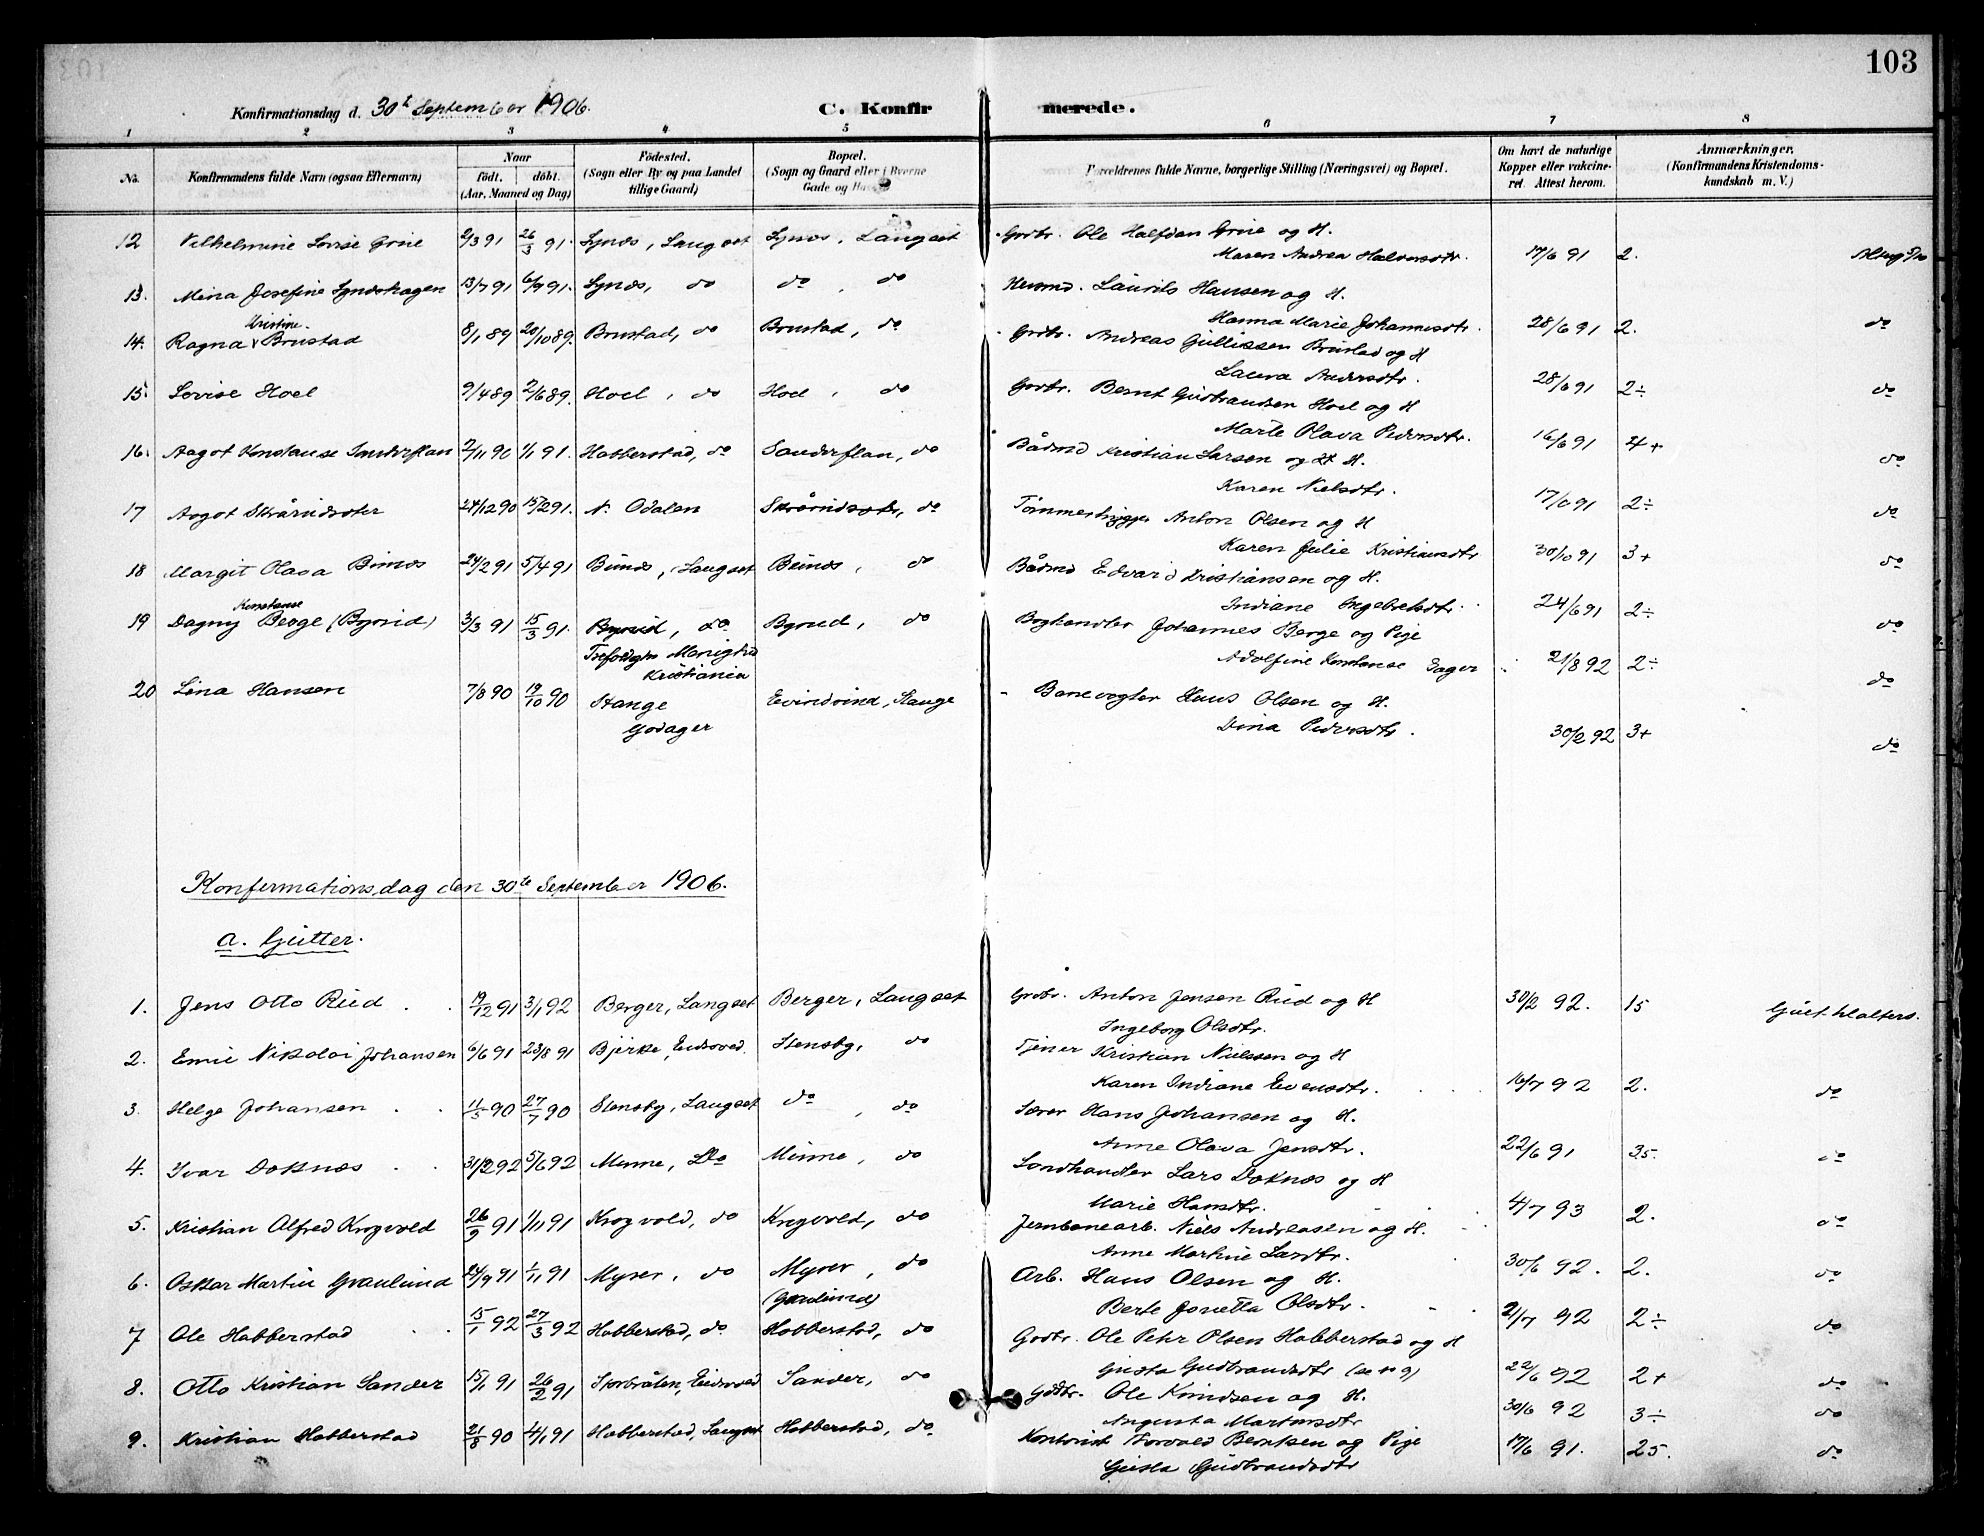 103
Konfirmationsdag d. 30te September 1906.
C. Konfirmerede.
1 2 3 4 5 6 7 8
No.
Konfirmandens fulde Navn (ogsaa Efternavn)
Naar
født. døbt.
(Aar, Maaned og Dag)
Fødested.
(Sogn eller By og paa Landet
tillige Gaard)
Bopæl.
(Sogn og Gaard eller i Byerne
Gade og
Forældrenes fulde Navne, borgerlige Stilling (Næringsvei) og Bopæl.
Om havt de naturlige
Kopper eller vakcine-
ret. Attest herom.
Anmærkninger.
(Konfirmandens Kristendoms-
kundskab m. V.)
12 Vilhelmine Lovise Grue 2/3 91 26/3 91. Synæs, Langset Synæs, Langset Grdbr. Ole Halfdan Grue og H.
Maren Andrea Halvorsdtr. 17/6 91 2.
13. Mina Josefine Synæshagen 13/7 91 6/9 91. Synæs, do do, do Husmd. Laurits Hansen og H.
Hanna Marie Johannesdtr. 28/6 91 2. do
Kristine
14. Ragna Brustad 8/1 89 20/10 89. Brustad, do Brustad, do Grdbr. Andreas Gulliksen Brustad og H
Laura Andersdtr. 28/6 91 2÷ do
15. Lovise Hoel 9/4 89 2/6 89. Hoel, do Hoel, do Grdbr. Bernt Gudbrandsen Hoel og H
Marte Olava Pedersdtr. 16/6 91 4+ do
16. Aagot Konstanse Sanderflan 2/11 90 1/1 91. Habberstad, do Sanderflan, do Bådmd Kristian Larsen og H.
Karen Nielsdtr. 17/6 91 2÷ do
17 Aagot Skårudsæter 24/12 90 15/2 91. N. Odalen Skårudsætr, do Tømmerhugger Anton Olsen og H
Karen Julie Kristiansdtr 30/10 91 3+ do
18 Margit Olava Bunæs 24/2 91 5/4 91 Bunæs, Langset Bunæs, do Bådmd Edvard Kristiansen og H.
Indiane Ingebretsdtr. 24/6 91 2÷ do
Konstanse
19 Dagny Berge (Byrud) 3/3 91 15/3 91. Byrud, do Byrud, do Boghandler Johannes Berge og Pige
Trefoldigh. Menighed
Kristiania
Adolfine Konstanse Sager 21/8 92 2÷ do
20 Lina Hansen 7/8 90 19/10 90 Stange Stange Banevogter Hans Olsen og H.
Godager
Dina Pedersdtr. 30/2 92 3+ do
Konfermationsdag den 30te September 1906.
a. Gutter.
1. Jens Otto Rud 19/12 91 3/1 92 Berger, Langset Berger, Langset Grdbr. Anton Jensen Rud og H
Ingeborg Olsdtr. 30/2 92. 15
2. Emil Nikolai Johansen 6/6 91 23/8 91 Bjerke, Eidsvold. Stensby, do Tjener Kristian Nielsen og H
Karen Indiane Evensdtr. 16/7 92 2. do
3. Helge Johansen 11/5 90 27/7 90 Stensby, Langset do, do Lærer Hans Johansen og H.
Anne Olava Jensdtr. 22/6 91 35. do
4. Ivar Doknæs 31/2 92 5/6 92 Minne, Do Minne, do Landhandler Lars Doknæs og H
Marie Hansdtr. 4/7 93 2. do
5. Kristian Alfred Krogvold 26/9 91 1/11 91 Krogvold, do Krogvold, do Jernbanearb. Niels Andreasen og H.
Anne Martine Larsdtr. 30/6 92. 2. do
6. Oskar Martin Graulund 24/9 91 1/11 91 Myrer, do Myrer, do Arb. Hans Olsen og H.
(Graulund)
Berte Jonetta Olsdtr. 21/7 92 2÷ do
7 Ole Habberstad 15/1 92 27/3 92 Habberstad, do Habberstad, do Grdbr. Ole Pehr Olsen Habberstad og H
Gusta Gudbrandsdtr (se n 9) 22/6 92 2+ do
8. Otto Kristian Sander 15/1 91 26/2 91 Storbråten, Eidsvold Sander, do Grdbr. Ole Knudsen og H.
Augusta Martinsdtr 30/6 92 3÷ do
9. Kristian Habberstad 21/8 90 4/1 91 Habberstad, Langset Habberstad, do Kontorist Torvald Bentsen og Pige
Gusta Gudbrandsdtr 17/6 91. 25. do